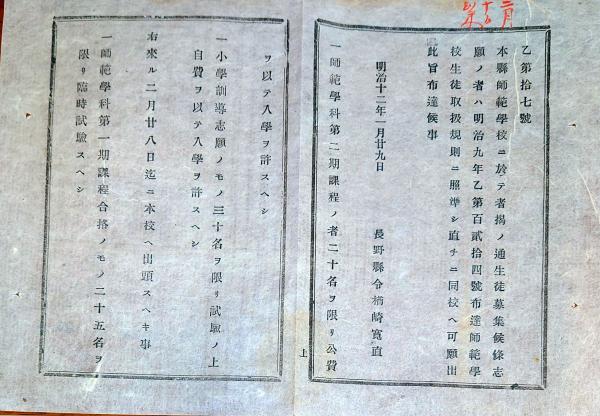 乙第拾七號
本縣師範學校ニ於テ者揭ノ通生徒募集候條志
願ノ者ハ明治九年乙第百貳拾四號布達師範學
校生徒取扱規則ニ照準シ直チニ同校ヘ可願出
此旨布達候事
明治十二年一月廿九日
長野縣令楢崎寬直
一師範學科第二期課程ノ者二十名ヲ限リ公費
上
ヲ以テ入學ヲ許スヘシ
一小學訓導志願ノモノ三十名ヲ限リ試驗ノ上
自費ヲ以テ入學ヲ許スヘシ
右來ル二月廿八日迄ニ本校ヘ出頭スヘキ事
一師範學科第一期課程合格ノモノ二十五名ヲ
限リ臨時試驗スヘシ